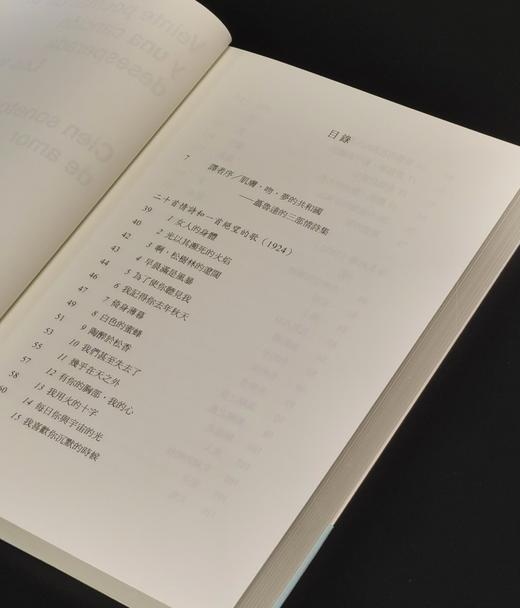 Veinte poemas d
Y una canció
desesperada
Cien soneto
de amor
目錄
7 譯者序/肌膚・吻・夢的共和國
——聶魯達的三部情詩集
二十首情詩和一首絕望的歌(1924)
39 1 女人的身體
40 2 光以其瀕死的火焰
42 3 啊,松樹林的遼闊
43 4 早晨滿是風暴
44 5 為了使你聽見我
46 6 我記得你去年秋天
47 7 倚身薄暮
49 8 白色的蜜蜂
51 9 陶醉於松香
53 10 我們甚至失去了
55 11 幾乎在天之外
57 12 有你的胸部,我的心
58 13 我用火的十字
60 14 每日你與宇宙的光
15 我喜歡你沉默的時候